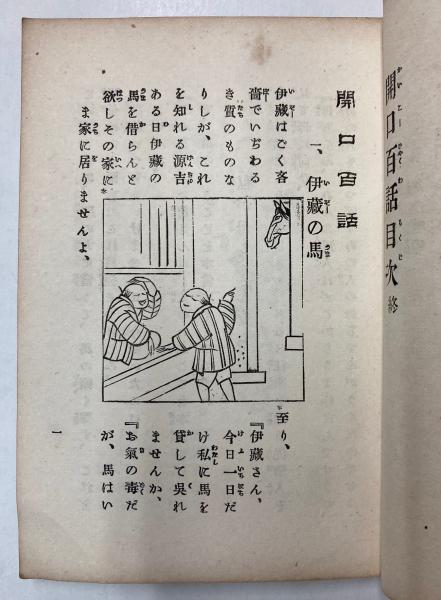 開口百話目次 終
開口百話
一、伊藏の馬
伊藏はごく吝
嗇でいぢわる
き質のものな
りしが、これ
を知れる源吉
ある日伊藏の
馬を借らんと
欲しその家に
至り、
『伊藏さん、
今日一日だ
け私に馬を
貸して呉れ
ませんか、
『お氣の毒だ
が、馬はい
ま家に居りませんよ、
一